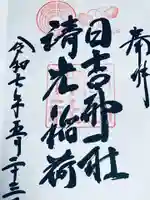 奉拝
日吉神社
靖光稲荷
令和七年五月二十三